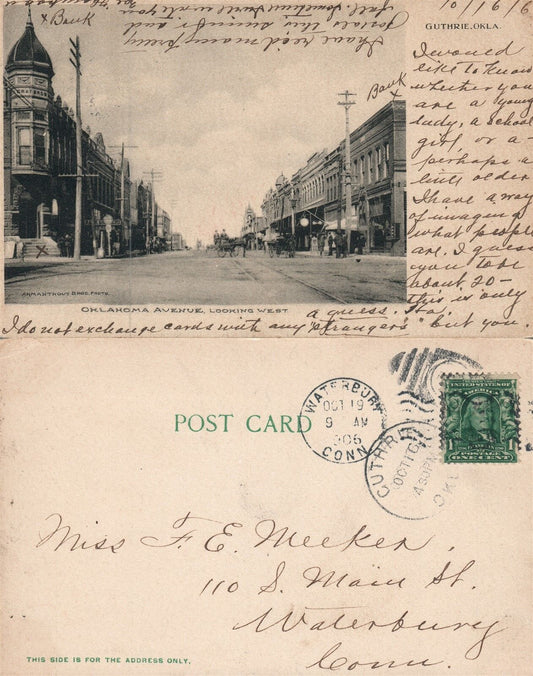 x Bank
Bank
x
GUTHRIE, OKLA.
10/16/6
I would
like to know
whether you
are a young
lady, a school
girl, or a -
perhaps a
little older
I have a way
of imaging
what people
are. I guess
you to be
about 20-
this is only
a guess.
I do not exchange cards with any "strangers" but you.
I have rec'd many
postals this and
fall.
ARMANTROUT BROS. PHOTO.
OKLAHOMA AVENUE, LOOKING WEST
POST CARD
WATERBURY
OCT 19
9 AM
1906
CONN.
GUTHRIE
OCT 17
4 30 PM
OKLA
UNITED STATES OF AMERICA
POSTAGE
ONE CENT
Miss F. E. Meeker,
110 S. Main St.
Waterbury
Conn.
THIS SIDE IS FOR THE ADDRESS ONLY.